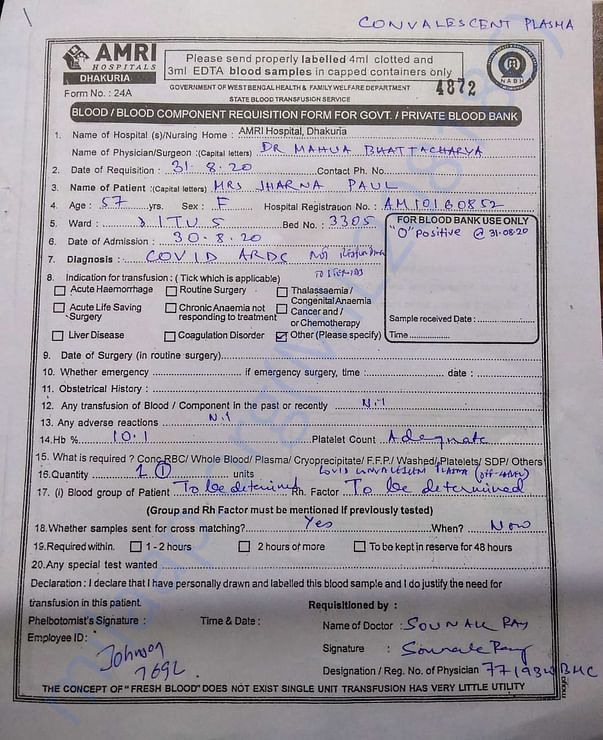 CONVALESCENT PLASMA
AMRI
HOSPITALS
DHAKURIA
Please send properly labelled 4ml clotted and
3ml EDTA blood samples in capped containers only
NABH
Form No. : 24A
GOVERNMENT OF WEST BENGAL HEALTH & FAMILY WELFARE DEPARTMENT
4872
STATE BLOOD TRANSFUSION SERVICE
BLOOD / BLOOD COMPONENT REQUISITION FORM FOR GOVT. / PRIVATE BLOOD BANK
1. Name of Hospital (s)/Nursing Home : AMRI Hospital, Dhakuria
Name of Physician/Surgeon :(Capital letters) DR MAHUA BHATTACHARYA
2. Date of Requisition : 31.8.20 Contact Ph. No.
3. Name of Patient :(Capital letters) MRS JHARNA PAUL
4. Age : 57 yrs. Sex : F Hospital Registration No. :
5. Ward : ITU 5 Bed No. : 3305
FOR BLOOD BANK USE ONLY
"O" Positive @ 31.08.20
6. Date of Admission : 30.8.20
7. Diagnosis : COVID ARDS not
8. Indication for transfusion : ( Tick which is applicable)
Acute Haemorrhage Routine Surgery Thalassaemia /
Congenital Anaemia
Acute Life Saving Surgery Chronic Anaemia not responding to treatment Cancer and / or Chemotherapy
Liver Disease Coagulation Disorder Other (Please specify)
Sample received Date :
Time
9. Date of Surgery (in routine surgery)
10. Whether emergency if emergency surgery, time : date :
11. Obstetrical History :
12. Any transfusion of Blood / Component in the past or recently Nil
13. Any adverse reactions Nil
14. Hb % 10.1 Platelet Count Adequate
15. What is required ? Conc.RBC/ Whole Blood/ Plasma/ Cryoprecipitate/ F.F.P./ Washed/ Platelets/ SDP/ Others
16. Quantity 1 (1) units COVID CONVALESCENT PLASMA (OFF-LABEL)
17. (i) Blood group of Patient To be determined Rh. Factor To be determined
(Group and Rh Factor must be mentioned If previously tested)
18. Whether samples sent for cross matching? Yes When? Now
19. Required within. 1 - 2 hours 2 hours of more To be kept in reserve for 48 hours
20. Any special test wanted
Declaration : I declare that I have personally drawn and labelled this blood sample and I do justify the need for
transfusion in this patient
Requisitioned by :
Phelbotomist's Signature : Time & Date : Name of Doctor : SOUNAK RAY
Employee ID : Johnson Signature : Sounak Ray
Designation / Reg. No. of Physician
THE CONCEPT OF "FRESH BLOOD" DOES NOT EXIST SINGLE UNIT TRANSFUSION HAS VERY LITTLE UTILITY